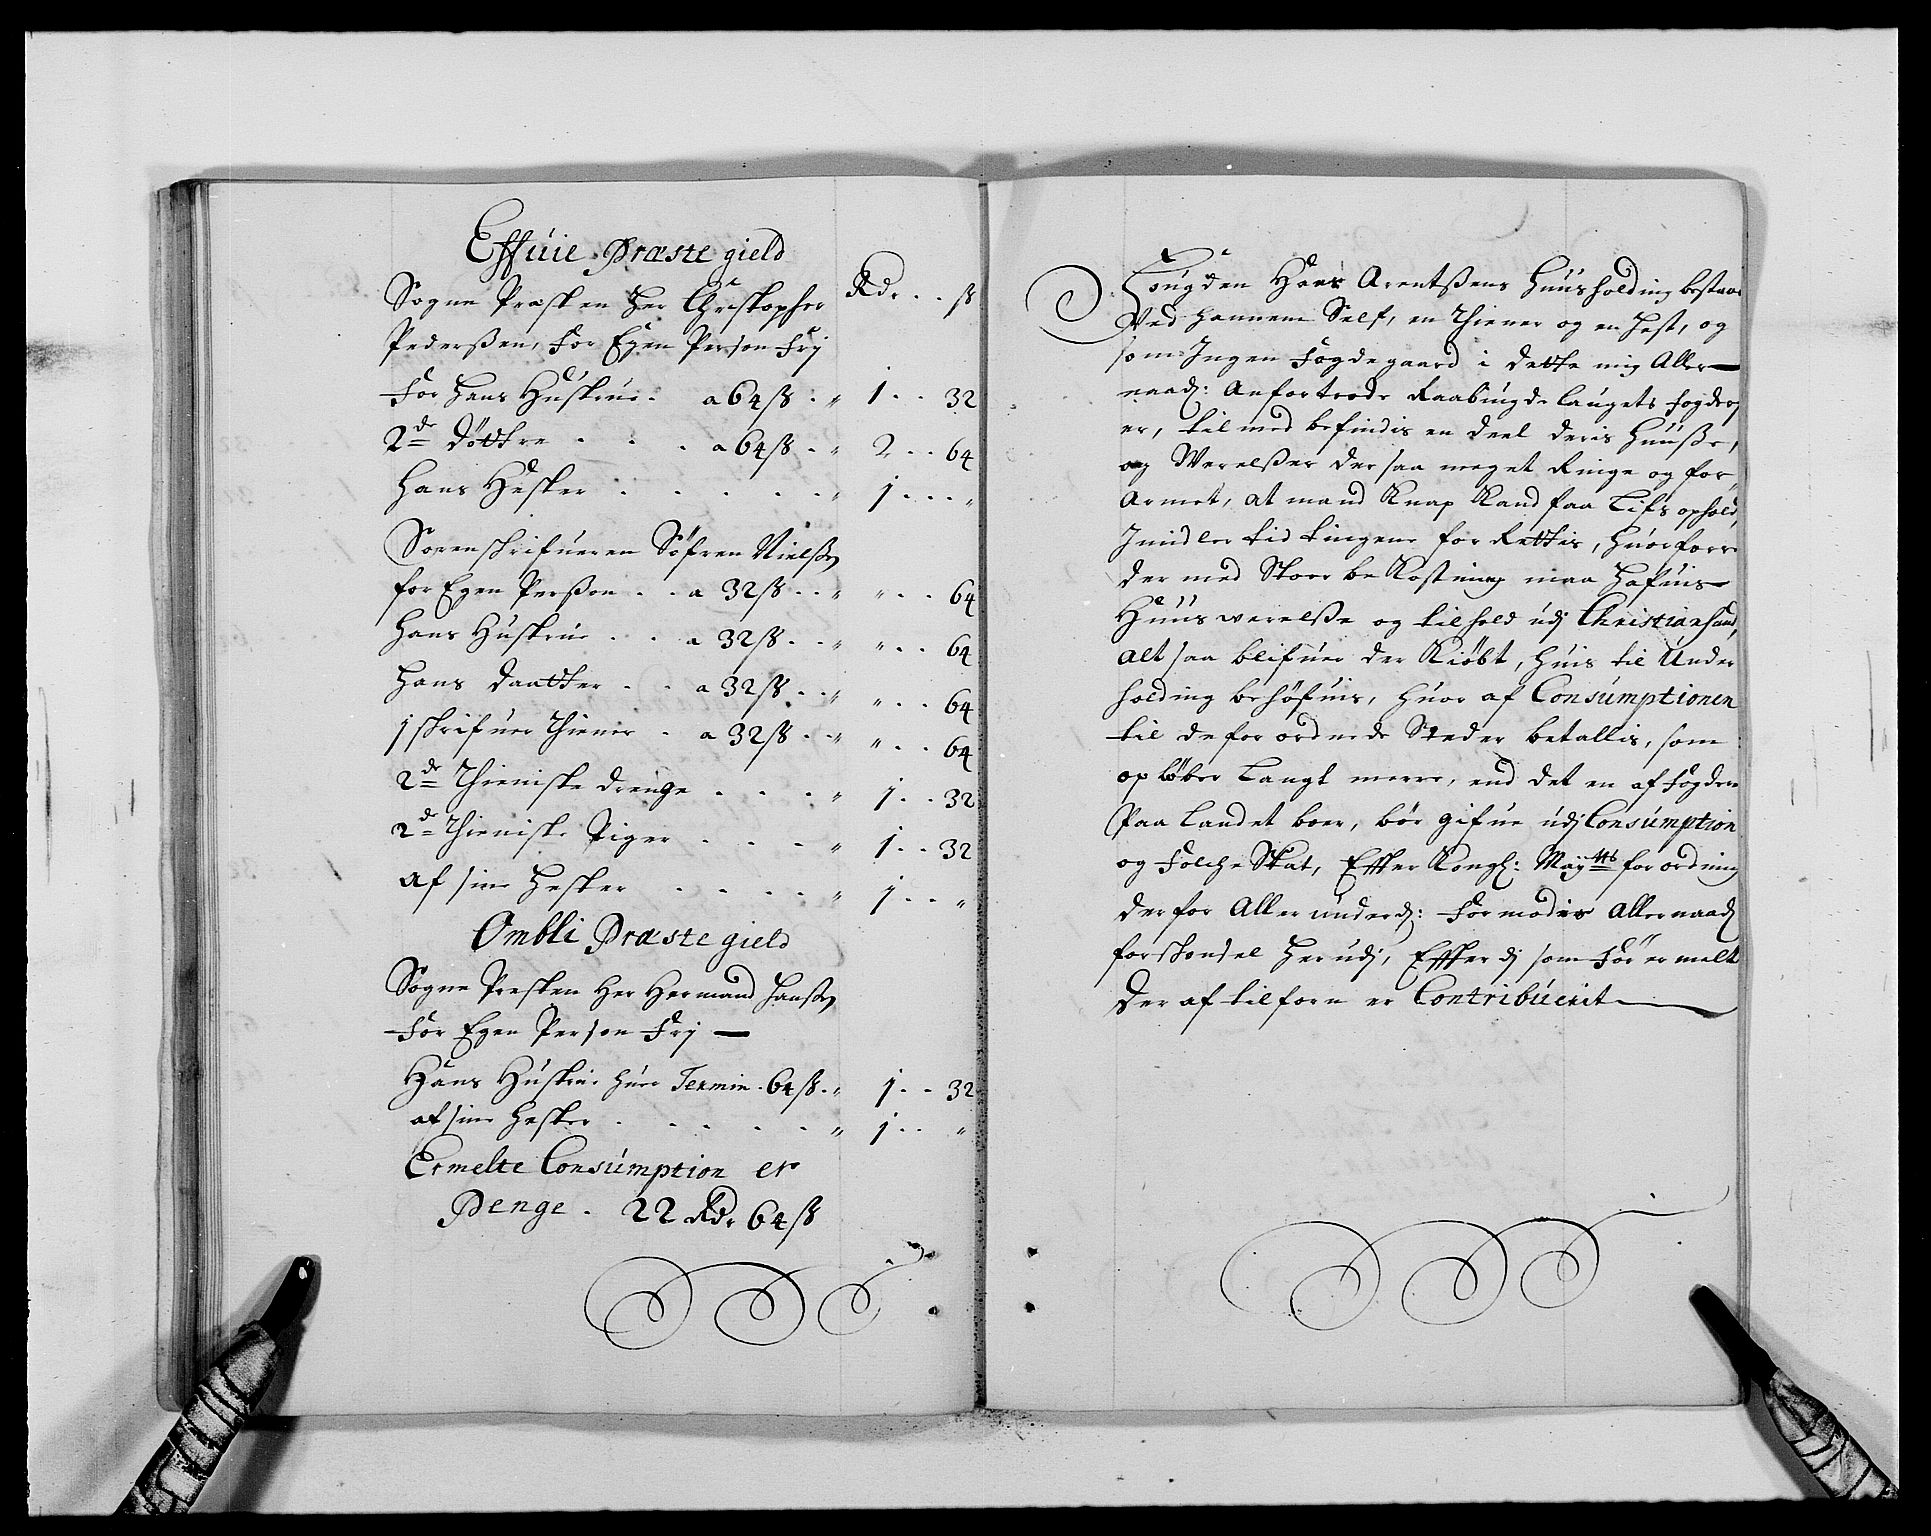 Effuie Præste gield
Rdr . . ß
Sogne Præsten Her Christopher
Pederßen, For Egen Person Frj
For hans Hustrue . a 64 ß . „ 1 . . 32
2de Döttre . . . a 64 ß . „ 2 . . 64
hans Hester . . . . . „ 1 . . . „
Sorenskrifueren Söfren Nielßen
for Egen Perßon . . a 32 ß . . „ „ . . 64
hans Hustrue . . . a 32 ß . . „ „ . . 64
hans Daatter . . a 32 ß . . „ „ . . 64
1 skrifuer Thiener . a 32 ß . . „ „ . . 64
2de Thieniste drenge . . . . „ 1 . . 32
2de Thieniste Piger . . . . „ 1 . . 32
af sine Hester . . . . . „ 1 . . „
Ombli Præste gield
Sogne Presten Her Hermand Hanßen
For Egen Person Frj —
Hans Hustrue huer Termin . 64 ß . „ 1 . . 32
af sine Hester . . . . . „ 1 . . „
Ermelte Consúmption er
Penge . 22 Rdr 64 ß
Fougden Hans Arentßens Huusholding bestaar
Ved hannem Self, en Thiener og en Hest, og
som Ingen Fogdegaard i dette mig Aller—
naad: Anfortrode Raabøigdelaugets Fogderj
er, til med befindis en deel deris Huuße,
og Werelßer der saa meget Ringe og for,
Armet, at mand Knap Kand faa Lifs ophold,
Imidler tid tingene for Rettis, huorforre
der med Stoer beKostning maa Hafuis
Huus werelße og tilhold udj Christianssand,
alt saa blifuer der Kiöbt, huis til Under
holding behöfuis, huor af Consúmptionen
til de forordnede Steder betallis, som
op löber Langt merre, end det en af Fogderne
Paa Landet boer, bör gifue udj Consúmption
og Folche Skat, Efter Kongl: Maytts forordning
derfor Allerunderd: Formodes Allernaad
forskonsel Her udj, Effter dj som För er melt
Der af tilforn er Contribúerit